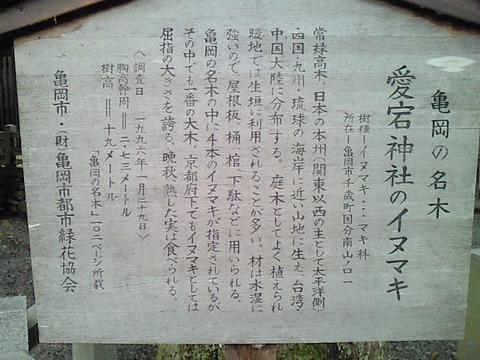 亀岡の名木
愛宕神社のイヌマキ
樹種―イヌマキ・・マキ科
所在―亀岡市千歳町国分南山ノ口一
常緑高木・日本の本州(関東以西の主として太平洋側)
・四国・九州・琉球の海岸に近い山地に生え、台湾・
中国大陸に分布する。庭木としてよく植えられ
暖地では生垣に利用されることが多い。材は水湿に
強いので、屋根板、桶、棺、下駄などに用いられる。
亀岡の名木の中に4本のイヌマキが指定されているが
その中でも一番の大木、京都府下でもイヌマキとしては
屈指の大きさを誇る。晩秋、熟した実は食べられる。
〈調査日 一九九六年一月二十九日〉
胸高幹周＝二・七三メートル
樹高＝十九メートル
「亀岡の名木」一〇二ページ所載
亀岡市・(財)亀岡市都市緑花協会